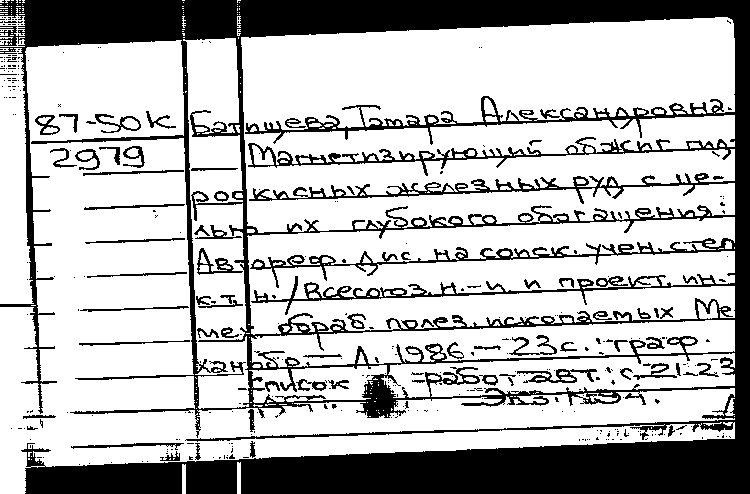 87-50К Батищева, Тамара Александровна.
2979 Магнетизирующий обжиг гид-
роокисных железных руд с це-
лью их глубокого обогащения:
Автореф. дис. на соиск. учен. степ
к.т.н. / Всесоюз. н.-и. и проект. ин-т
мех. обраб. полез. ископаемых Ме
ханобр. — Л., 1986. — 23 с. : граф.
Список работ авт.: с. 21-23
Экз. №94.